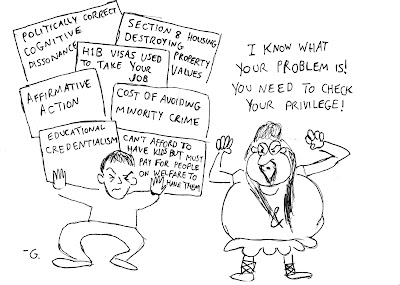 POLITICALLY CORRECT
COGNITIVE
DISSONANCE
SECTION 8 HOUSING
DESTROYING
PROPERTY
VALUES
H1B VISAS USED
TO TAKE YOUR
JOB
AFFIRMATIVE
ACTION
COST OF AVOIDING
MINORITY CRIME
EDUCATIONAL
CREDENTIALISM
CAN'T AFFORD TO
HAVE KIDS BUT MUST
PAY FOR PEOPLE
ON WELFARE TO
HAVE THEM
I KNOW WHAT
YOUR PROBLEM IS!
YOU NEED TO CHECK
YOUR PRIVILEGE!
-G.